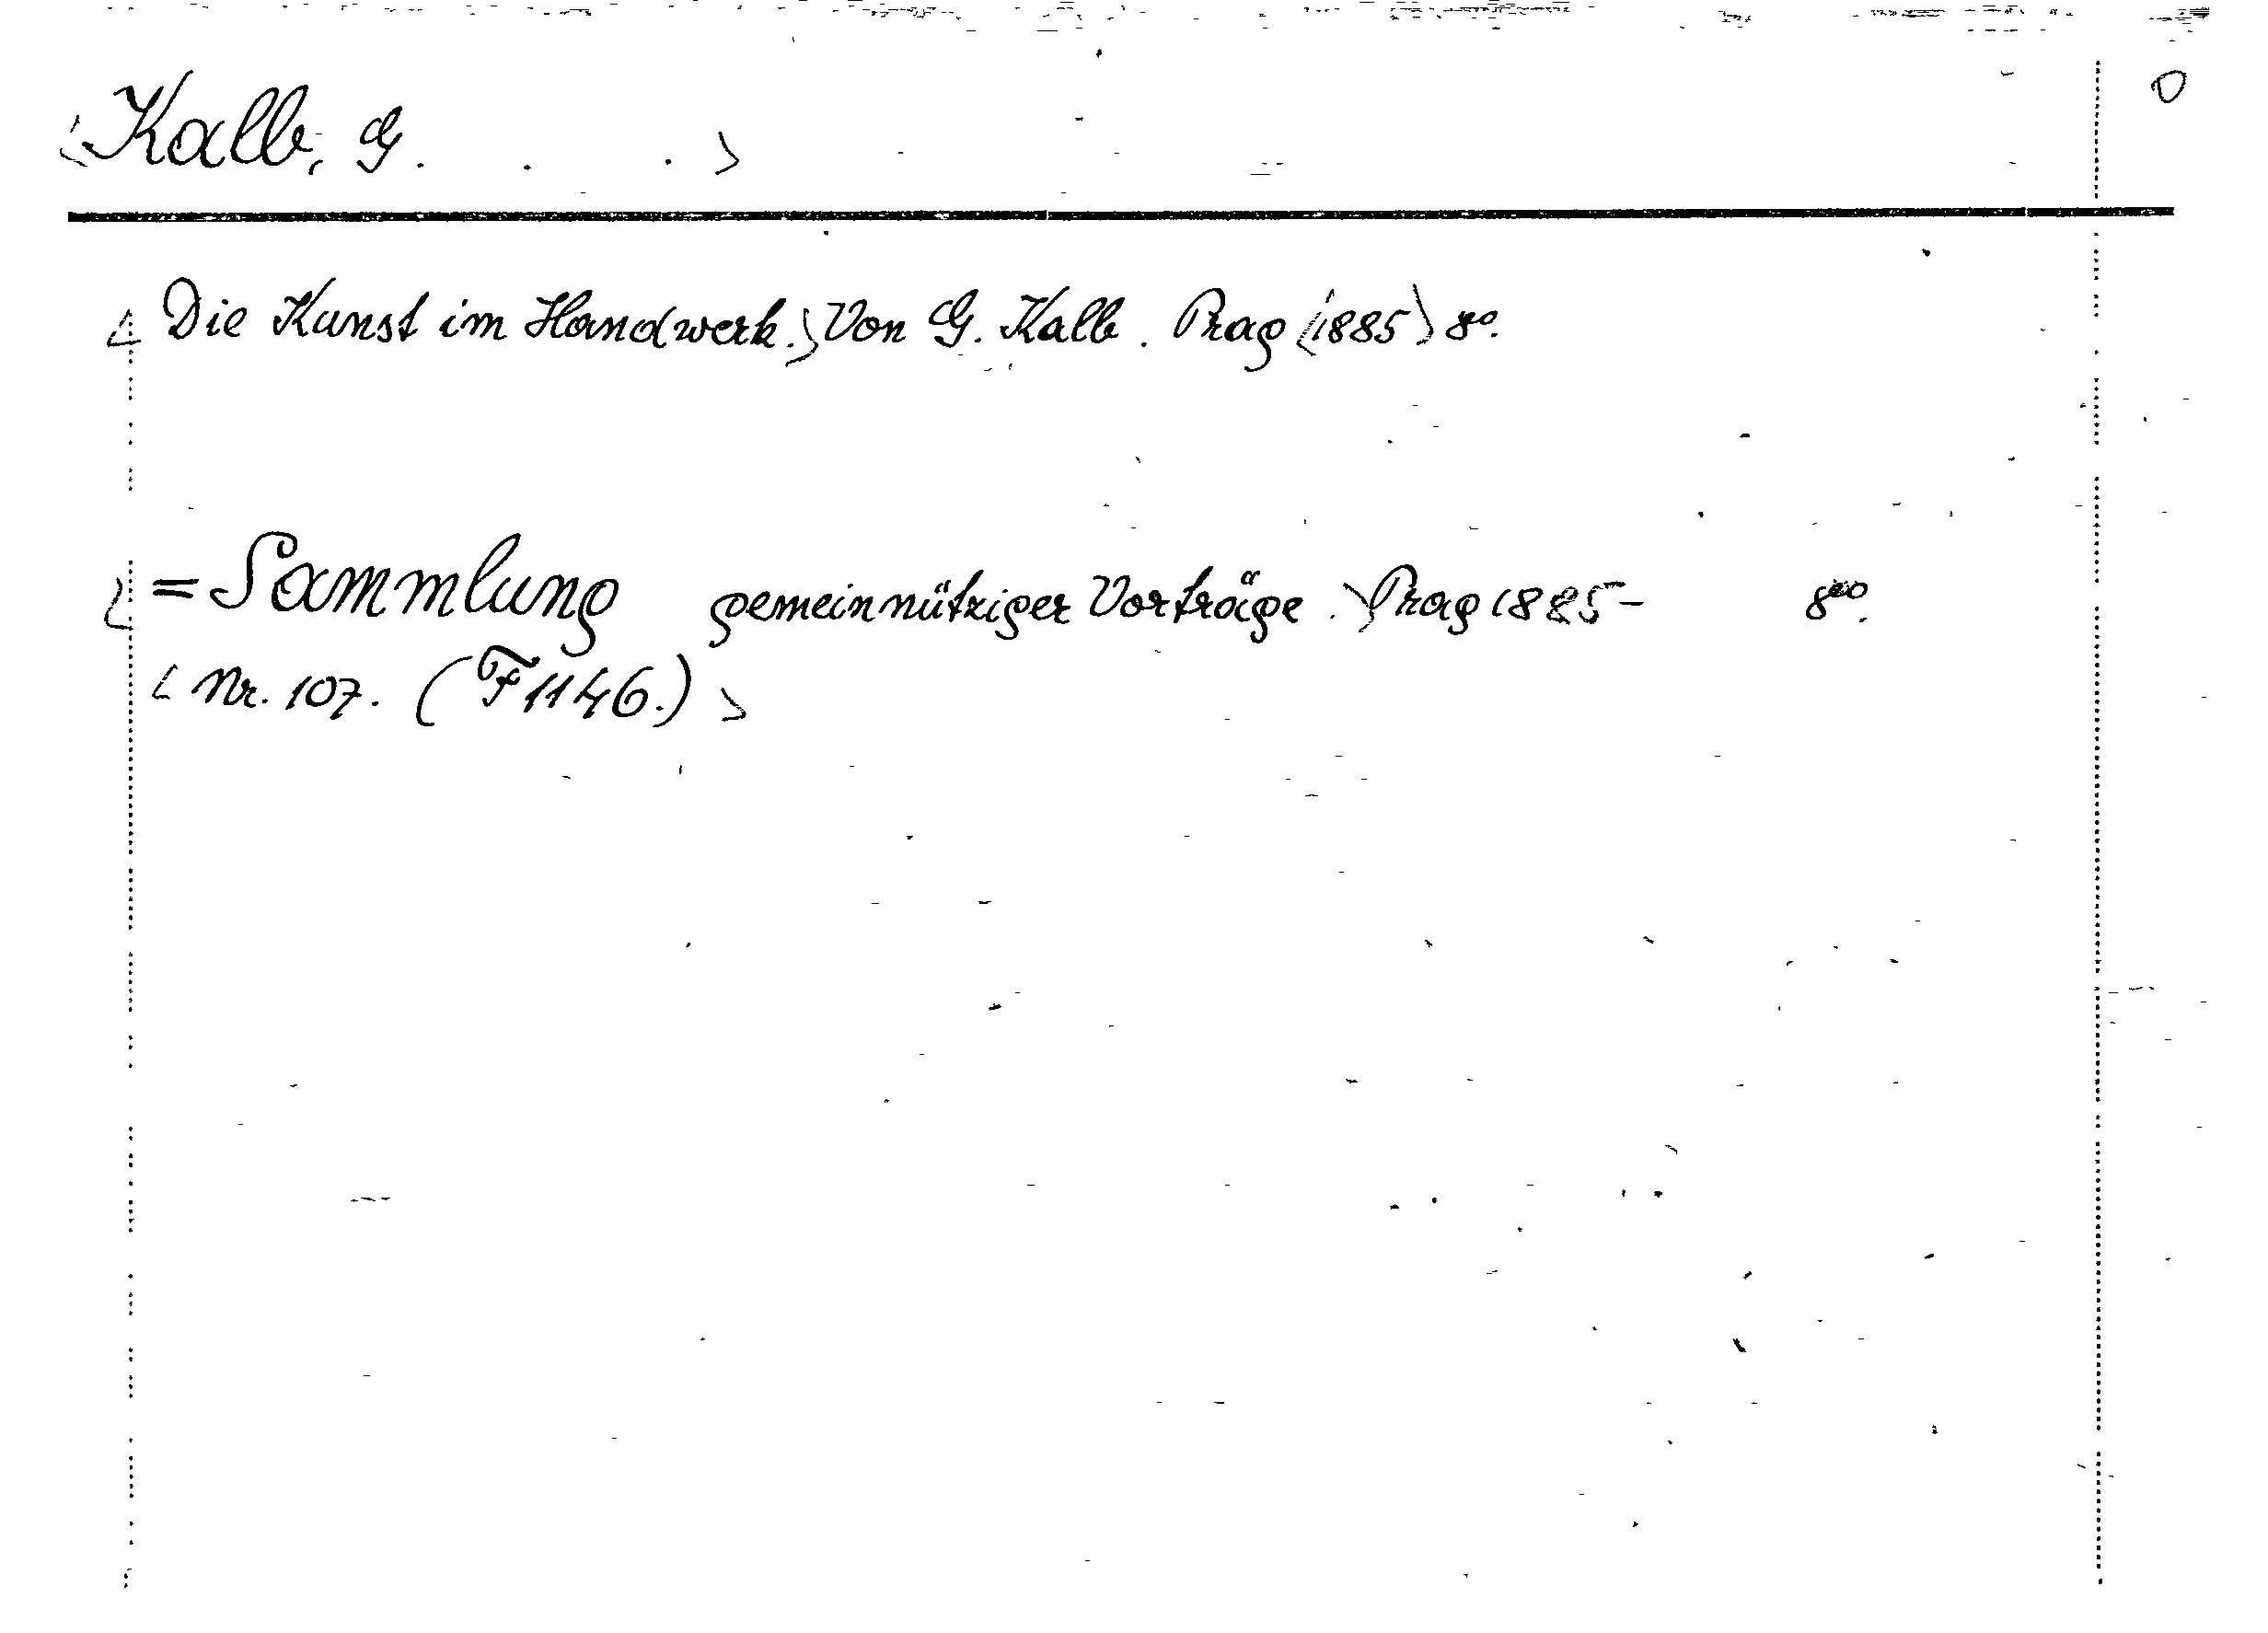 <Kalb, G. . .>
<Die Kunst im Handwerk.> Von G. Kalb. Prag <1885> 8°.
<=Sammlung gemeinnütziger Vorträge.> Prag 1885- 8°.
<Nr. 107. (F 1146.)>